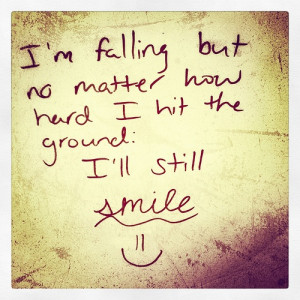 I'm falling but
no matter how
hard I hit the
ground:
I'll still
smile